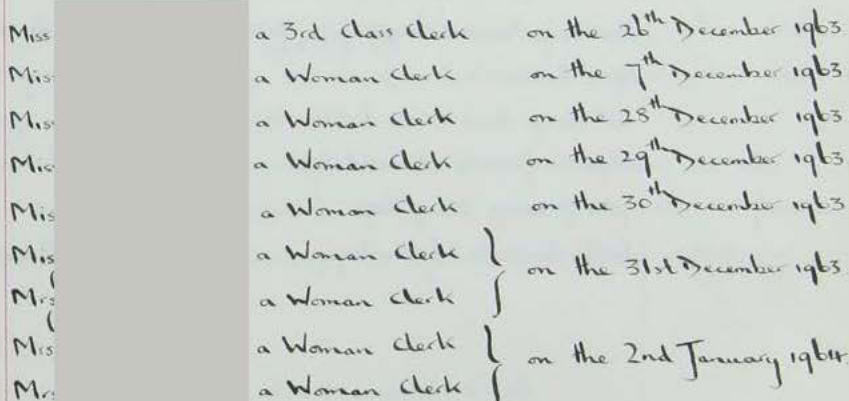 Miss a 3rd Class Clerk on the 26th December 1963
Mis a Woman Clerk on the 7th December 1963
Mis a Woman Clerk on the 28th December 1963
Mis a Woman Clerk on the 29th December 1963
Mis a Woman Clerk on the 30th December 1963
Mis a Woman Clerk
on the 31st December 1963
Mrs a Woman Clerk
Mis a Woman Clerk
on the 2nd January 1964.
Mrs a Woman Clerk